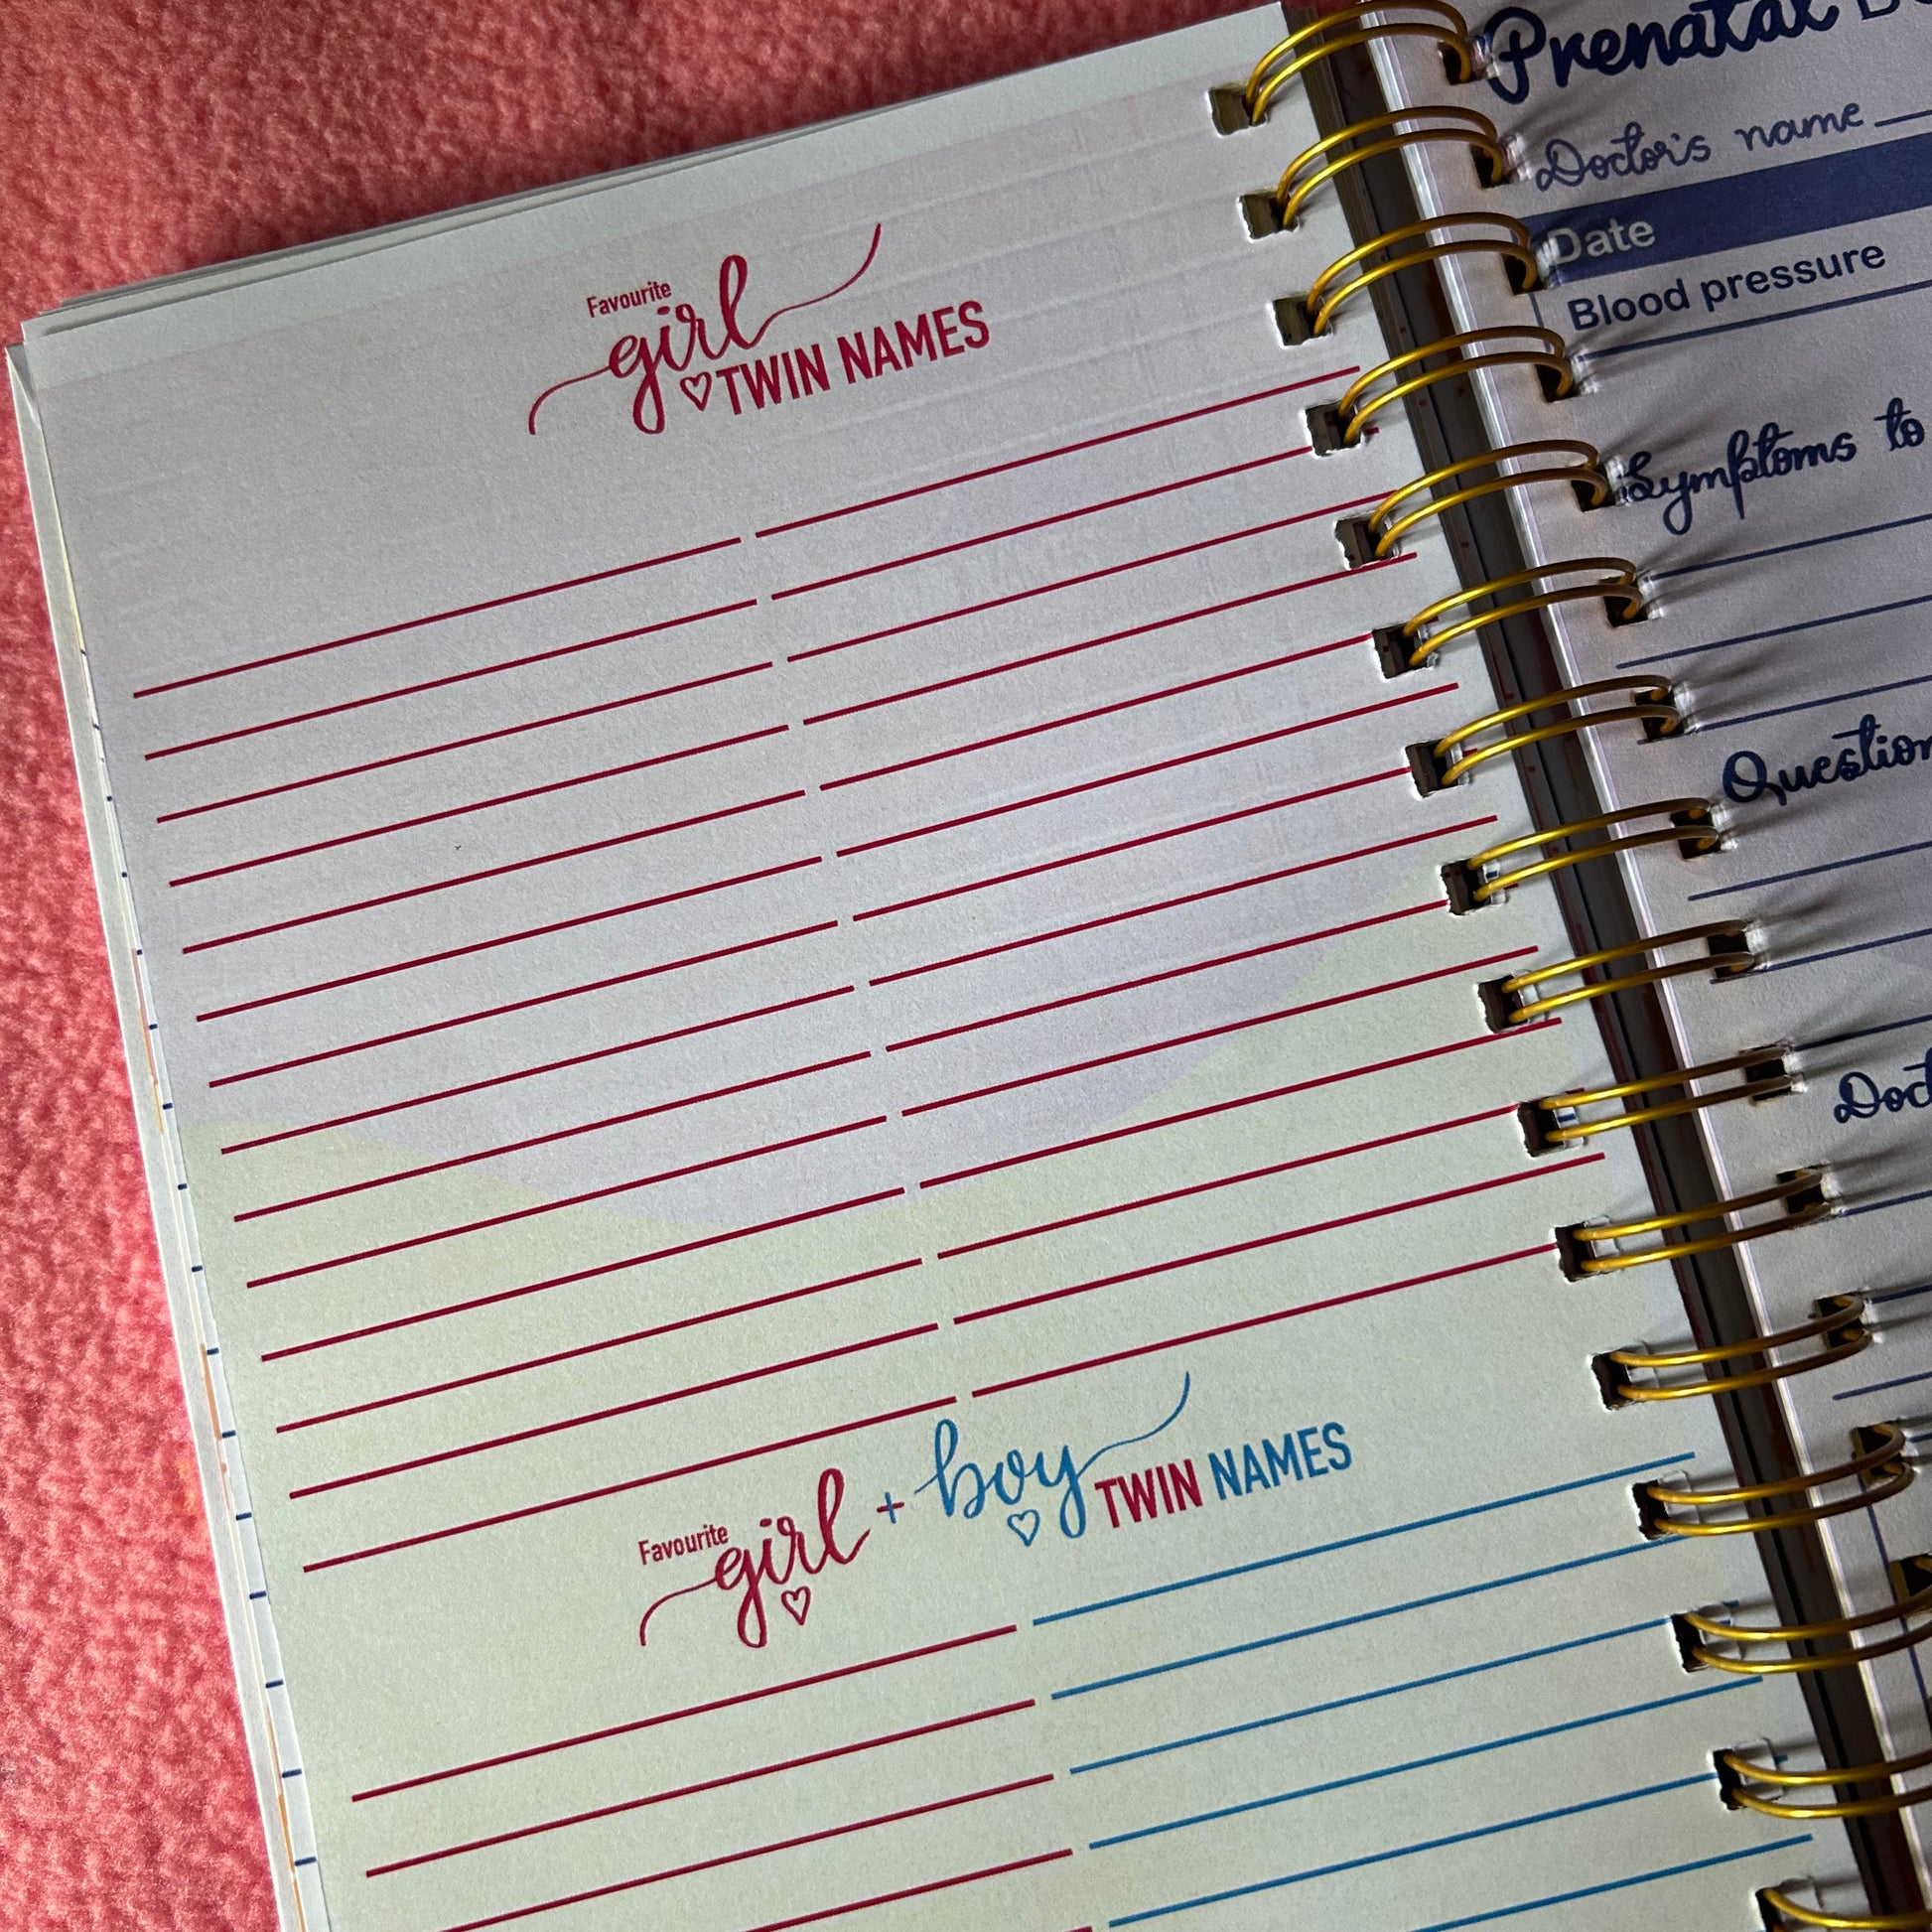 Favourite
girl
TWIN NAMES
Favourite
girl + boy
TWIN NAMES
Prenatal
Doctor's name
Date
Blood pressure
Symptoms to